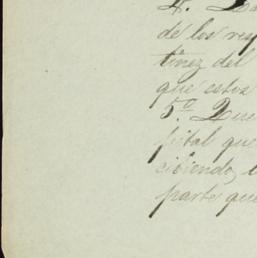 4.
de los res
tinez del
que estos
5.º Que
pital que
cibiendo,
parte que